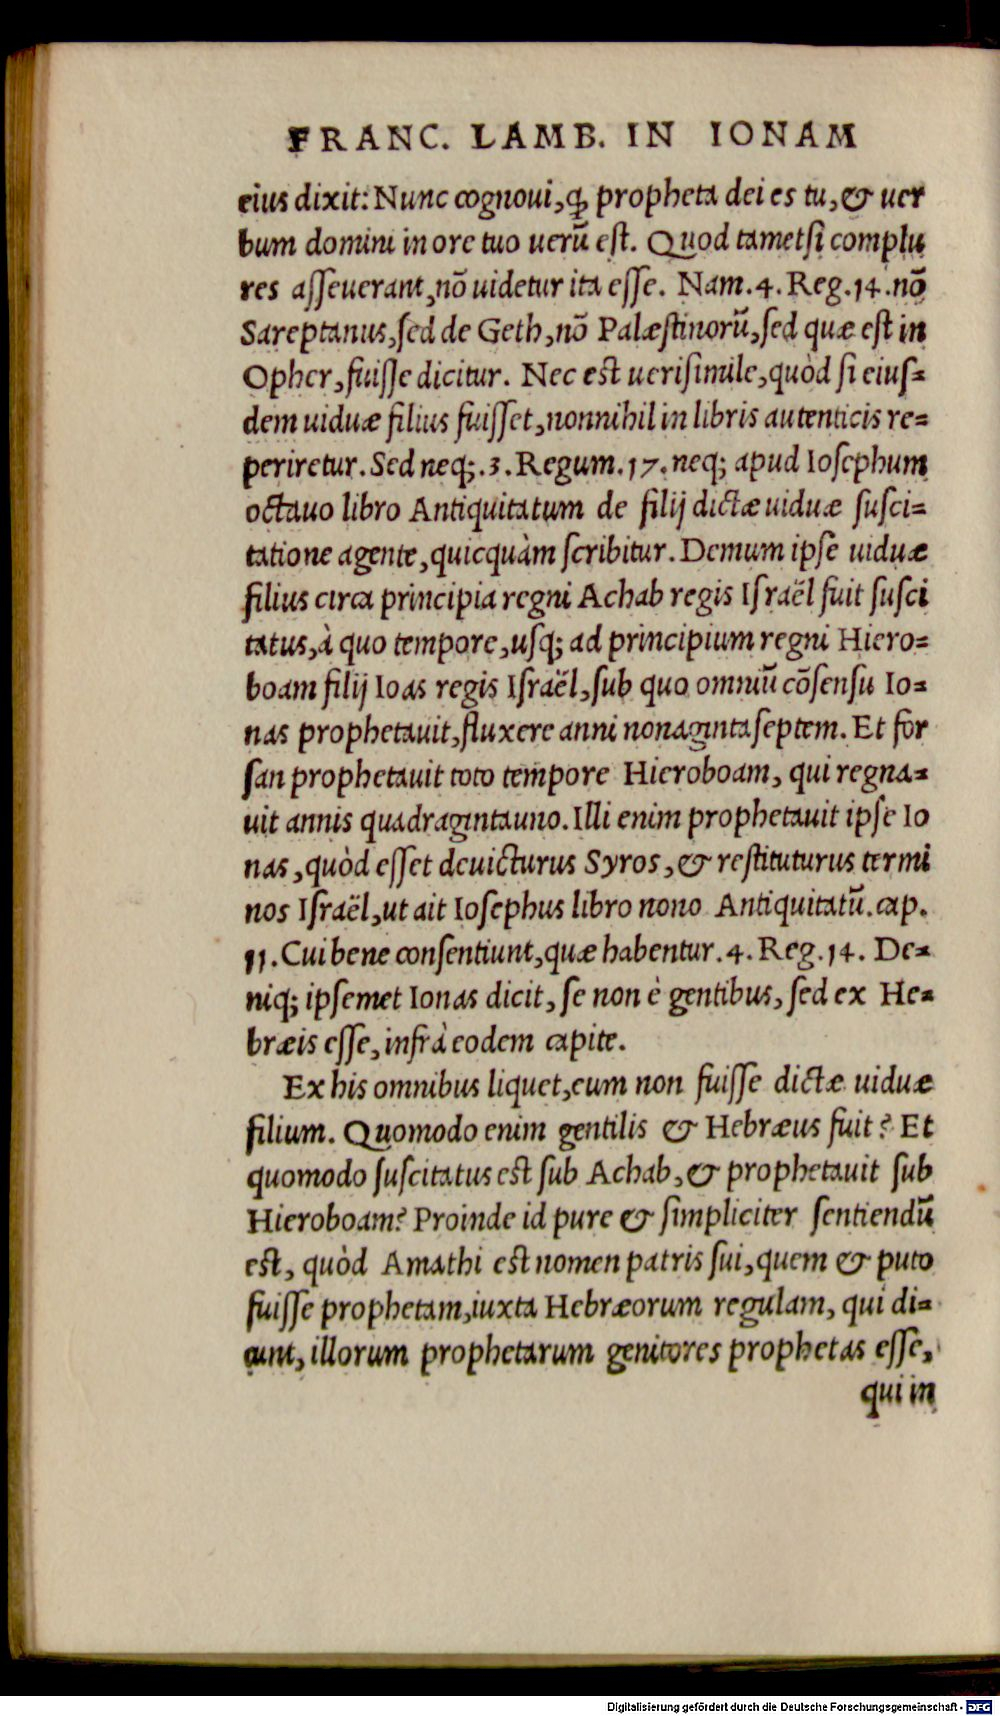 FRANC. LAMB. IN IONAM
eius dixit: Nunc cognoui, ꝙ propheta dei es tu, & uer
bum domini in ore tuo uerũ est. Quod tametsi complu
res asseuerant, nõ uidetur ita esse. Nam .4. Reg. 14. nõ
Sareptanus, sed de Geth, nõ Palæstinorũ, sed quæ est in
Opher, fuisse dicitur. Nec est uerisimile, quòd si eius-
dem uiduæ filius fuisset, nonnihil in libris autenticis re-
periretur. Sed neq; .3. Regum. 17. neq; apud Iosephum
octauo libro Antiquitatum de filij dictæ uiduæ susci-
tatione agente, quicquàm scribitur. Demum ipse uiduæ
filius circa principia regni Achab regis Israël fuit susci
tatus, à quo tempore, usq; ad principium regni Hiero-
boam filij Ioas regis Israël, sub quo omniũ cõsensu Io-
nas prophetauit, fluxere anni nonagintaseptem. Et for
san prophetauit toto tempore Hieroboam, qui regna-
uit annis quadragintauno. Illi enim prophetauit ipse Io
nas, quòd esset deuicturus Syros, & restituturus termi
nos Israël, ut ait Iosephus libro nono Antiquitatũ. cap.
11. Cui bene consentiunt, quæ habentur .4. Reg. 14. De-
niq; ipsemet Ionas dicit, se non è gentibus, sed ex He-
bræis esse, infrà eodem capite.
Ex his omnibus liquet, eum non fuisse dictæ uiduæ
filium. Quomodo enim gentilis & Hebræus fuit? Et
quomodo suscitatus est sub Achab, & prophetauit sub
Hieroboam? Proinde id pure & simpliciter sentiendũ
est, quòd Amathi est nomen patris sui, quem & puto
fuisse prophetam, iuxta Hebræorum regulam, qui di-
cunt, illorum prophetarum genitores prophetas esse,
qui in
Digitalisierung gefördert durch die Deutsche Forschungsgemeinschaft - DFG